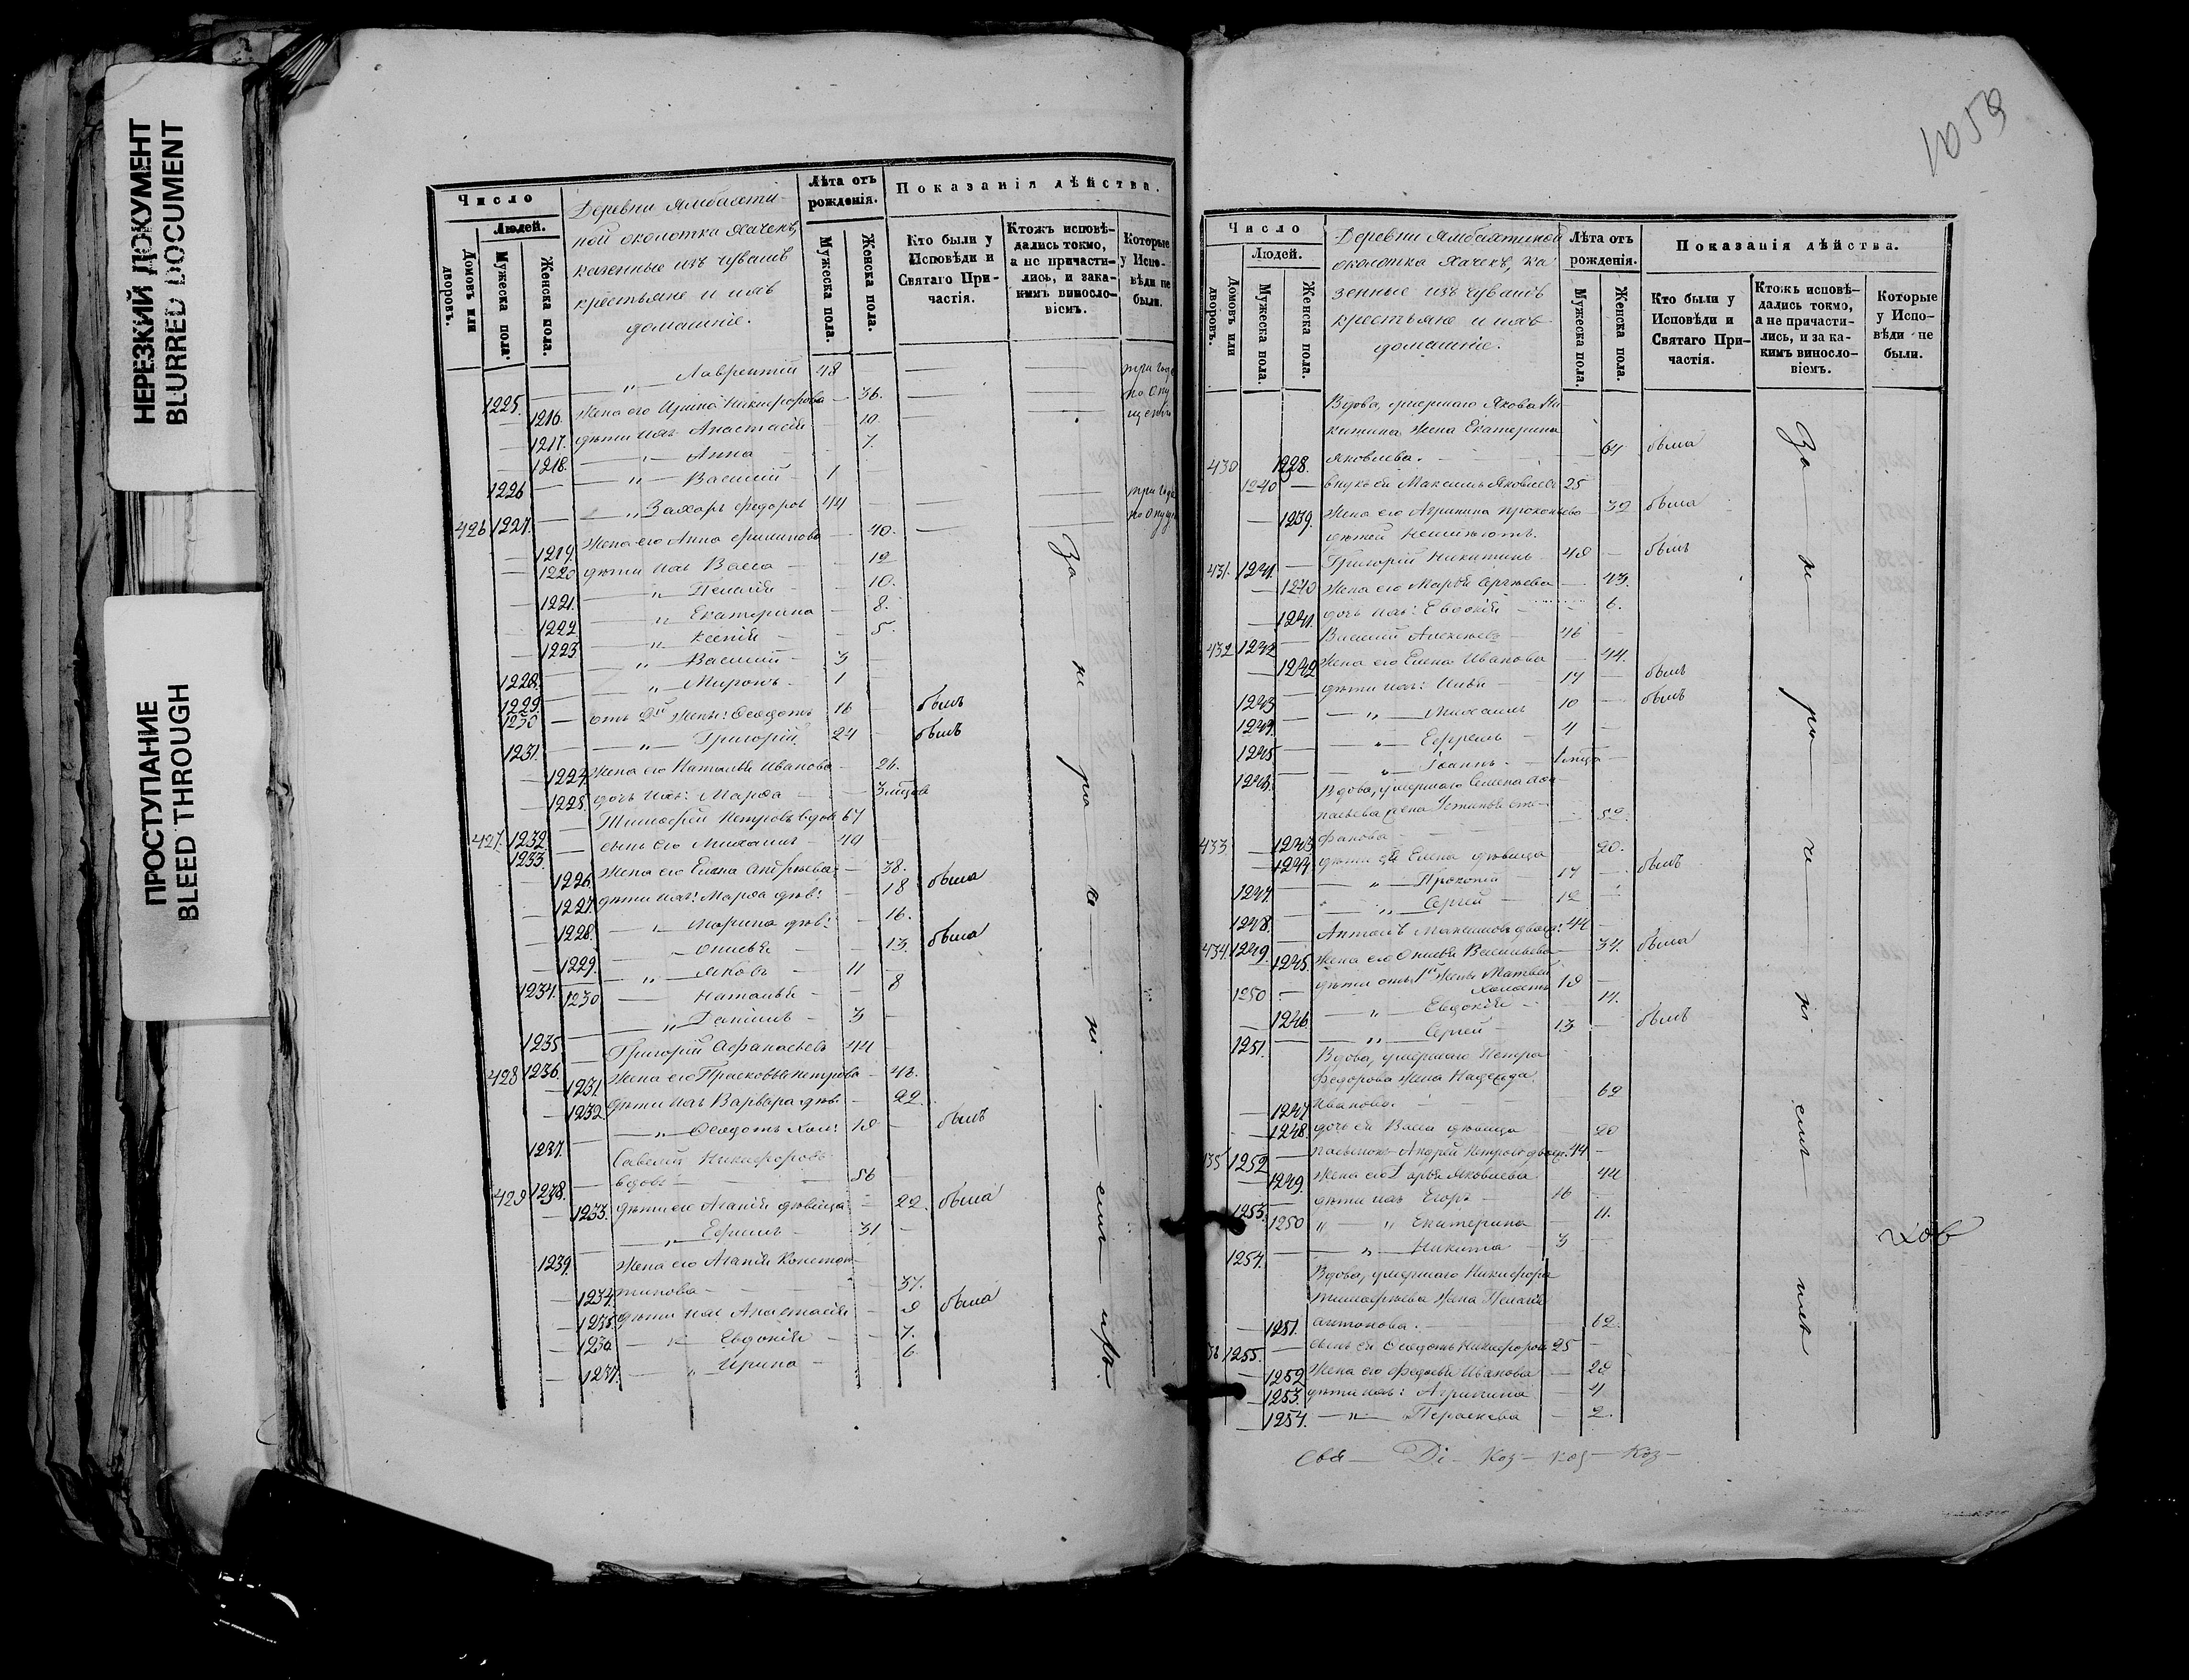 НЕРЕЗКИЙ ДОКУМЕНТ
BLURRED DOCUMENT
ПРОСТУПАНИЕ
BLEED THROUGH
Число
Людей.
Домовъ или дворовъ.
Мужеска пола.
Женска пола.
Деревни Ямбахти-
ной околотка Хачекъ,
казенные изъ чувашъ
крестьяне и ихъ
домашніе.
Лѣта отъ рожденія.
Мужеска пола.
Женска пола.
Показанія дѣйства.
Кто были у Исповѣди и Святаго Причастія.
Ктожъ исповѣ-
дались токмо,
а не причасти-
лись, и зака-
кимъ винослo-
віемъ.
Которые
у Испо-
вѣди не
были.
1225. Лаврентій 48
1216. жена его Ирина Никифорова 36.
1217. дѣти ихъ Анастасія 10
1218. Анна 7.
1226 Василій 1
426 1227. Захаръ Федоровъ 44
1219. жена его Анна Филипова 40.
1220 дѣти ихъ Васса 12
1221. Пелагія 10.
1222. Екатерина 8.
1223 Ксенія 5.
1228. Василій 3
1229. Миронъ 1
1230 отъ 2й жены: Ѳеодотъ 16 былъ
1231. Григорій 24 былъ
1224. жена его Наталья Иванова 26.
1225. дочь ихъ: Марѳа 3 мѣсяца
427. 1232. Тимофей Петровъ вдов 67
1233. сынъ его Михаилъ 40
1226. жена его Елена Андреева 38.
1227. дѣти ихъ: Марѳа дѣв: 18 была
1228. Марина дѣв: 16.
1229. Онисья 13. была
1234. Яковъ 11
1230 Наталья 8
1235 Даніилъ 3
428 1236. Григорій Афанасьевъ 44
1231. жена его Прасковья Петрова 43.
1232. дѣти ихъ Варвара дѣв. 22.
1237. Ѳеодотъ хол: 19 былъ
Савелій Никифоровъ
429 1238. вдовъ 56
1233. дѣти его Агапія дѣвица 22. была
1239. Ефимъ 31
жена его Агапія Констан-
1234. тинова 37.
1235. дѣти ихъ Анастасія 9 была
1236 Евдокія 7.
1237. Ирина 6
За не ра че ні емъ ихъ.
1053
Число
Людей.
Домовъ или дворовъ.
Мужеска пола.
Женска пола.
Деревни Ямбахтиной
околотка Хачекъ, ка-
зенные изъ чувашъ
крестьяне и ихъ
домашніе.
Лѣта отъ рожденія.
Мужеска пола.
Женска пола.
Показанія дѣйства.
Кто были у
Исповѣди и
Святаго При-
частія.
Ктожъ исповѣ-
дались токмо,
а не причасти-
лись, и за ка-
кимъ винослo-
віемъ.
Которые
у Испо-
вѣди не
были.
Вдова, умершаго Якова Ни-
китина жена Екатерина
430 1238. Яковлева. 64 была
1240 внукъ ея Максимъ Яковлевъ 25
1239. жена его Агрипина Прокопьева 32 была
дѣтей неимѣютъ.
431. 1241. Григорій Никитинъ 49 былъ
1240 жена его Марья Сергѣева 43.
1241. дочь ихъ: Евдокія 6.
432 1242 Василій Алексѣевъ 46
1242 жена его Елена Иванова 44.
1243 дѣти ихъ: 17 былъ
1244. Михаилъ 10 былъ
1245 Ефремъ 4
Іоаннъ
Вдова, умершаго Семена
433 1243 фанова 52.
1244 дѣти ея Елена дѣвица 20.
1247. Прокопій 17 былъ
1248. Сергѣй 12
434. 1249. Антонъ Максимовъ 44
1245. жена его Онисья Васильева 37. была
1250 дѣти отъ 1й жены Матвей холостъ 19
1246 Евдокія 14.
1251. Сергѣй 13 былъ
Вдова, умершаго Петра
Федорова жена Надежда
1247 Иванова. 62
1248. дочь ея Васса дѣвица 20
1252 пасынокъ Андрей Петровъ 44
1249. жена его Дарья Яковлева 44
1253. дѣти ихъ Егоръ 16
1250 Екатерина 11.
1254. Никита 3
Вдова, умершаго Никифора
Тимофеева жена Пелагія
1251. Антонова. 62.
1255. сынъ ея Ѳеодотъ Никифоровъ 25
1252 жена его Федосья Иванова 28
1253. дѣти ихъ: Агрипина 4
1254. Параскева 2.
За не ра че ні емъ ихъ